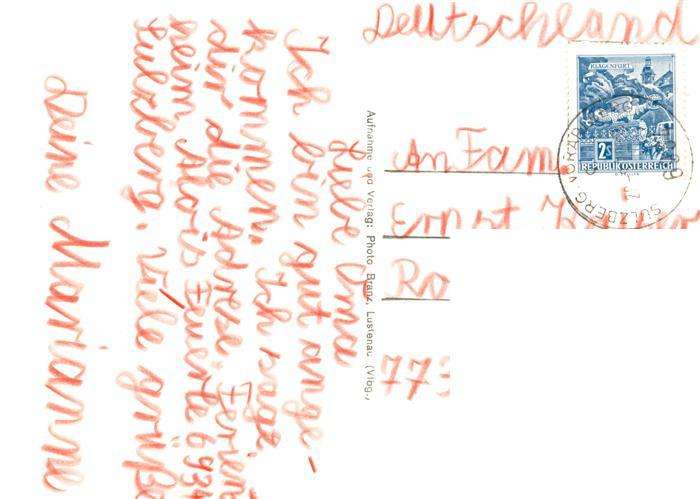 Deutschland
KLAGENFURT
2S
REPUBLIK ÖSTERREICH
SULZBERG
An Fam
Ernst
Ro
773
Aufnahme und Verlag: Photo Branz, Lustenau (Vlbg.,
Liebe Oma
Ich bin gut ange-
kommen. Ich sage
dir die Adrese: Ferien
heim Alois 6934
Sulzberg. Viele grüße
Deine Marianne